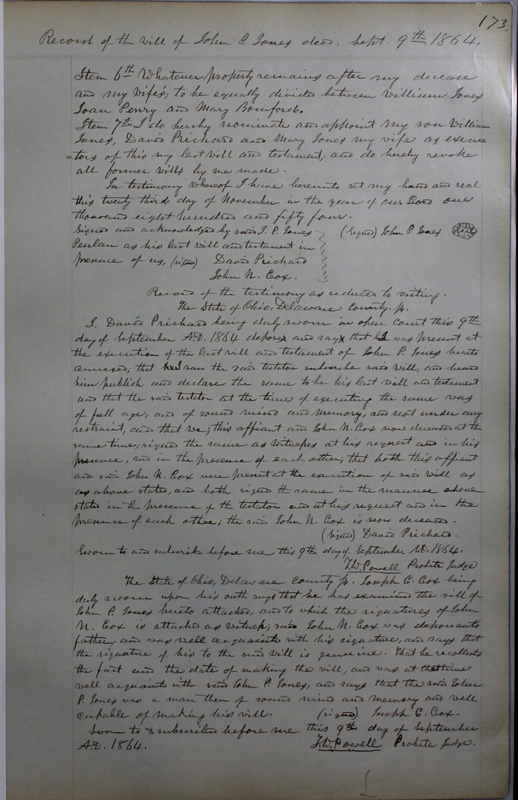 173.
Record of the will of John P. Jones decd. Sept. 9th 1864.
Item 6th Whatever property remains after my decease
and my wife's, to be equally divided between William Jones
Joan Penry and Mary Bomford.
Item 7th I do hereby nominate and appoint my son William
Jones, David Prichard and Mary Jones my wife as execu
=tors of this my last will and testament, and do hereby revoke
all former wills by me made.
In testimony whereof I have hereunto set my hand and seal
this twenty third day of November in the year of our Lord one
thousand eight hundred and fifty four.
Signed and acknowledged by said J. P. Jones (Signed) John P. Jones
Penlan as his last will and testament in
presence of us, (signed) David Prichard
John N. Cox.
Record of the testimony as reduced to writing.
The State of Ohio, Delaware County ss.
I, David Prichard being duly sworn in open Court this 9th
day of September A.D. 1864 depose and say that I was present at
the execution of the last will and testament of John P. Jones hereto
annexed; that I saw the said testator subscribe said will, and heard
him publish and declare the same to be his last will and testament
and that the said testator at the time of executing the same was
of full age, and of sound mind and memory, and not under any
restraint, and that we, this affiant and John N. Cox now deceased at the
same time, signed the same as witnesses at his request and in his
presence, and in the presence of each other, that both this affiant
and said John N. Cox were present at the execution of said will as
as above stated, and both signed the same in the manner above
stated in the presence of the testator and at his request and in the
presence of each other; the said John N. Cox is now deceased.
(Signed) David Prichard.
Sworn to and subscribed before me this 9th day of September A.D. 1864.
T.W. Powell Probate Judge
The State of Ohio, Delaware County ss. Joseph C. Cox being
duly sworn upon his oath says that he has examined the will of
John P. Jones hereto attached, and to which the signatures of John
N. Cox is attached as witness; said John N. Cox was deponants
father, and was well acquainted with his signature, and says that
the signature of his to the said will is genuine. That he recollects
the fact and the date of making the will, and was at that time
well acquainted with said John P. Jones, and says that the said John
P. Jones was a man then of sound mind and memory and well
capable of making his will. (signed) Joseph C. Cox.
Sworn to & subscribed before me this 9th day of September
A.D. 1864. T.W. Powell Probate Judge.